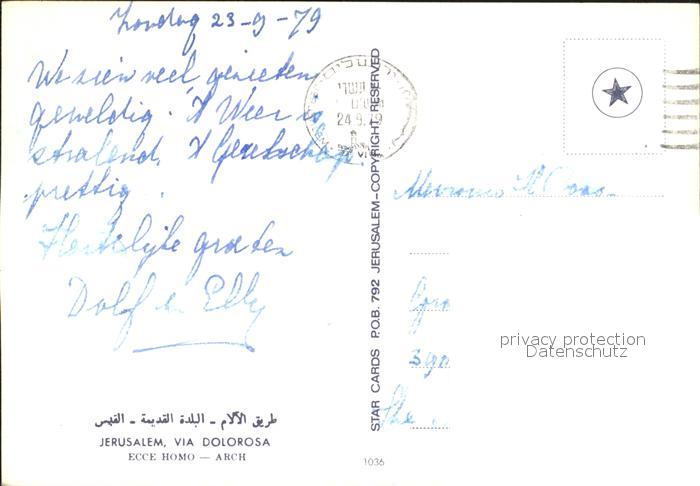 Zondag 23-9-79
We zien veel genieten
geweldig. 't Weer is
stralend, 't Gezelschap
prettig.
Hartelijke groeten
Dolf en Elly
طريق الآلام - البلدة القديمة - القدس
JERUSALEM, VIA DOLOROSA
ECCE HOMO — ARCH
STAR CARDS P.O.B. 792 JERUSALEM-COPYRIGHT RESERVED
1036
24.9.79
Mevrouw
privacy protection
Datenschutz